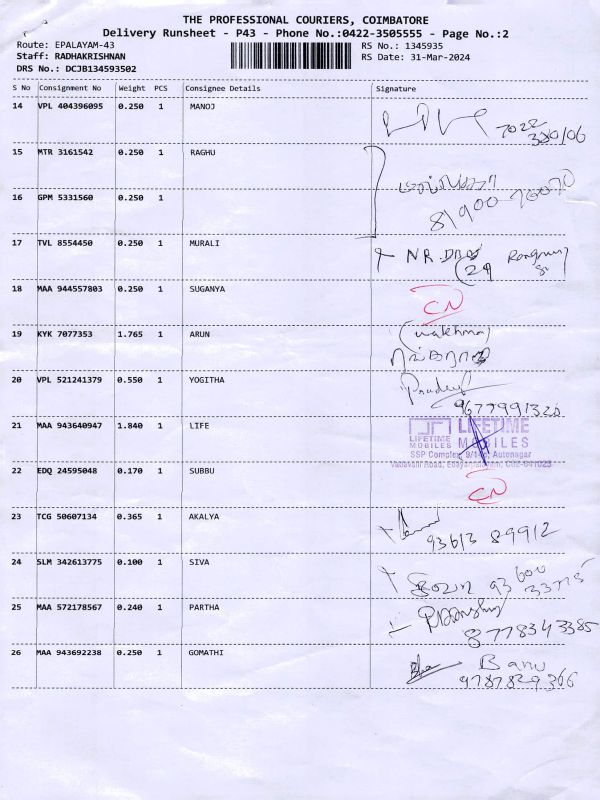 THE PROFESSIONAL COURIERS, COIMBATORE
Delivery Runsheet - P43 - Phone No.:0422-3505555 - Page No.:2
Route: EPALAYAM-43 RS No.: 1345935
Staff: RADHAKRISHNAN RS Date: 31-Mar-2024
DRS No.: DCJB134593502
S No Consignment No Weight PCS Consignee Details Signature
14 VPL 404396095 0.250 1 MANOJ
7022
15 MTR 3161542 0.250 1 RAGHU
16 GPM 5331560 0.250 1
81900 70070
17 TVL 8554450 0.250 1 MURALI
N R
(29
18 MAA 944557803 0.250 1 SUGANYA
CN
19 KYK 7077353 1.765 1 ARUN
20 VPL 521241379 0.550 1 YOGITHA
Pradeep
9677991320
21 MAA 943640947 1.840 1 LIFE
LIFETIME MOBILES
LIFETIME MOBILES
SSP Complex, Autonagar
22 EDQ 24595048 0.170 1 SUBBU
CN
23 TCG 50607134 0.365 1 AKALYA
93613 89912
24 SLM 342613775 0.100 1 SIVA
93600
33775
25 MAA 572178567 0.240 1 PARTHA
8778343385
26 MAA 943692238 0.250 1 GOMATHI
Banu
9787829366